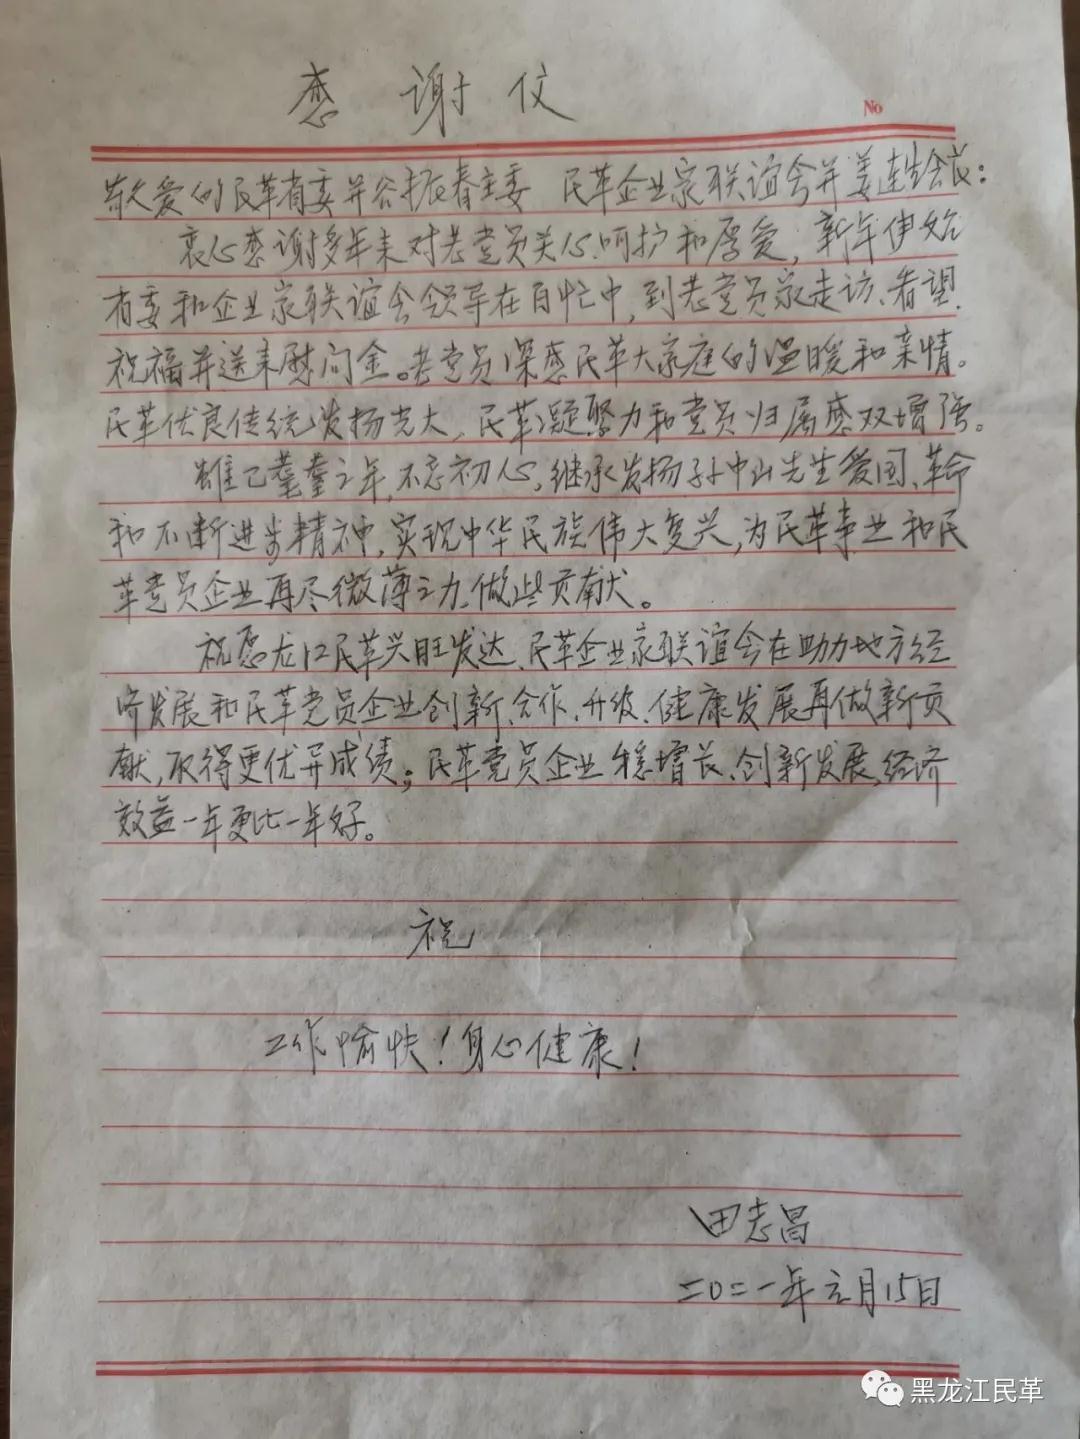 感谢信
No
敬爱的民革省委并谷振春主委 民革企业家联谊会并姜连生会长:
衷心感谢多年来对老党员关心、呵护和厚爱,新年伊始
省委和企业家联谊会领导在百忙中,到老党员家走访、看望、
祝福并送来慰问金。老党员深感民革大家庭的温暖和亲情。
民革优良传统发扬光大,民革凝聚力和党员归属感双增强。
虽已耄耋之年,不忘初心,继承发扬孙中山先生爱国、革命
和不断进步精神,实现中华民族伟大复兴,为民革事业和民
革党员企业再尽微薄之力、做些贡献。
祝愿龙江民革兴旺发达、民革企业家联谊会在助力地方经
济发展和民革党员企业创新、合作、升级、健康发展再做新贡
献,取得更优异成绩;民革党员企业稳增长、创新发展,经济
效益一年更比一年好。
祝
工作愉快!身心健康!
田志昌
二〇二一年元月15日
黑龙江民革